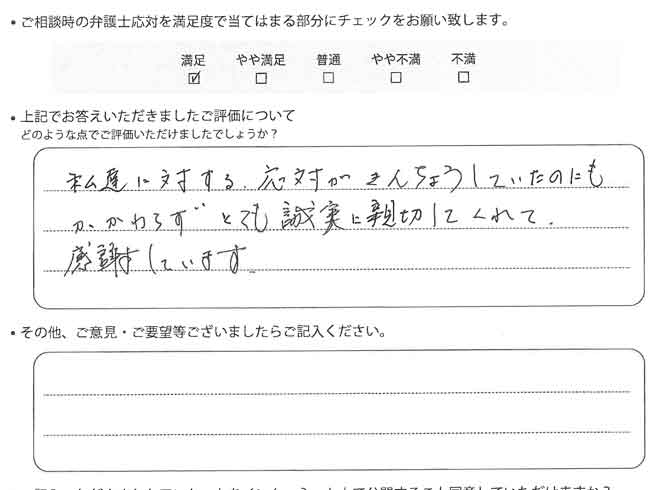 • ご相談時の弁護士応対を満足度で当てはまる部分にチェックをお願い致します。
満足 やや満足 普通 やや不満 不満
☑ □ □ □ □
• 上記でお答えいただきましたご評価について
どのような点でご評価いただけましたでしょうか？
私達に対する、応対がきんちょうしていたのにも
かかわらずとても誠実に親切してくれて、
感謝しています。
• その他、ご意見・ご要望等ございましたらご記入ください。